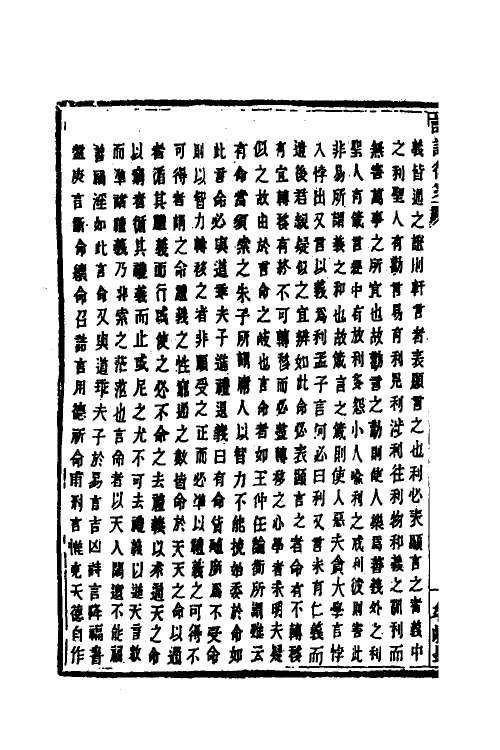 義皆通之證則軒言者表顯言之也利必表顯言之者義中
之利聖人有勸言易有利見利涉利往利物和義之訓利而
無害萬事之所宜也故勸言之勸則使人樂爲善義外之利
聖人有箴言經中有放利多怨小人喻利之戒利彼則害此
非易所謂義之和也故箴言之箴則使人惡夫貪大學言悖
入悖出又言以義爲利孟子言何必曰利又言未有仁義而
遺後君親疑似之宜辨如此命必表顯言之者命有不轉移
有宜轉移有終不可轉移而必盡轉移之心學者未明夫疑
似之故由於言命之歧也言命者如王仲任論衡所謂雖云
有命當須索之朱子所謂庸人以智力不能挽始委於命如
此言命必與道乖夫子進禮退義曰有命貨殖爲不受命
則以智力轉移之者非順受之正而必準以禮義之可得不
可得者謂之命禮義之性窮通之數皆命於天天之命以通
者循其禮義而行或使之必不命之去禮義以求通天之命
以窮者循其禮義而止或尼之尤不可去禮義以逆天言數
而準諸禮義乃非索之茫茫也言命者以天人闊遠不能福
善禍淫如此言命又與道乖夫子於易言吉凶詩言降福書
盤庚言斷命續命召誥言用德祈命甫刑言惟克天德自作